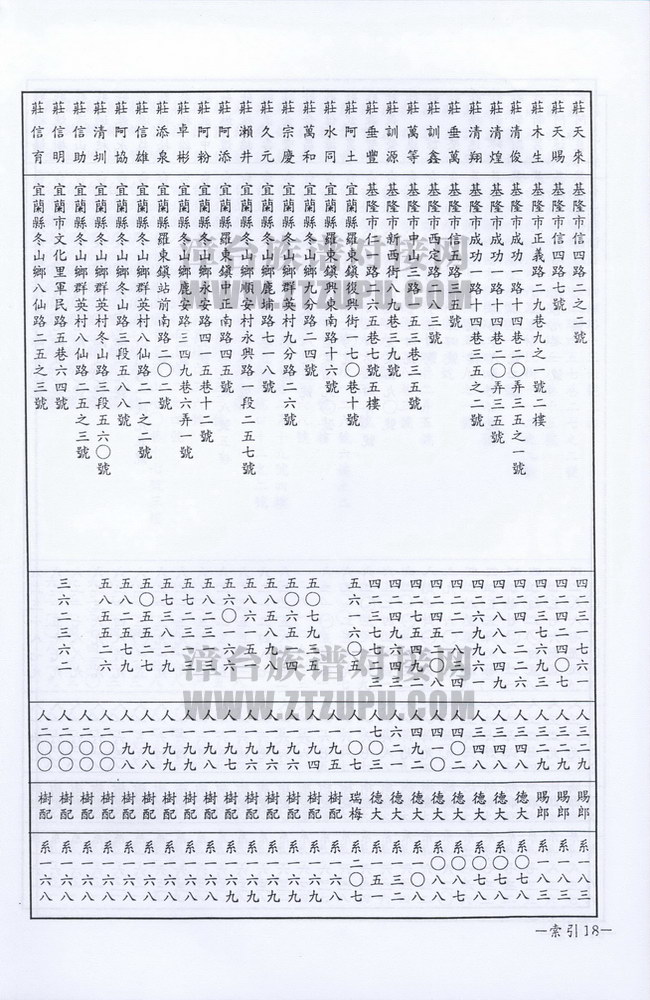 莊天來 基隆市信四路二之二號 四二三一七六一 人三二九 賜郎 系一八三
莊天賜 基隆市信四路七號 四二四二四〇七 人三二九 賜郎 系一八三
莊木生 基隆市正義路二九巷九之一號二樓 四二三七六九三 人三二九 賜郎 系一八三
莊清俊 基隆市成功一路十四巷二〇弄三五之一號 四二四一一二六 人三四八 德大 系〇七八
莊清煌 基隆市成功一路十四巷二〇弄三五號 人三四八 德大 系〇七八
莊清翔 基隆市成功一路十四巷三五之二號 四二六九九六一 人三四八 德大 系〇七八
莊垂萬 基隆市信五路三五號 四二二一八八四 人四〇二 德大 系〇八七
莊訓鑫 基隆市西定路八三號 人四九〇 德大 系〇八八
莊萬等 基隆市中山三路一五三巷三五號 人四一二 德大 系一〇八
莊訓源 基隆市新西街八九巷三九號 人六二一 德大 系一三二
莊垂豐 基隆市仁一路二六五巷七號五樓 四二三七七七三 人七〇三 德大 系一五一
莊阿土 宜蘭縣羅東鎮復興街一七〇巷十號 五六一六〇五 人一〇七 瑞梅 系二〇七
莊水同 宜蘭縣羅東鎮興東南路十六號 人一九五 樹配 系一六八
莊萬和 宜蘭縣冬山鄉九分路二四號 五〇七九三五 人一九四 樹配 系一六八
莊宗慶 宜蘭縣冬山鄉群英村九分路二六號 五〇六五一四 人一九六 樹配 系一六九
莊久元 宜蘭縣冬山鄉鹿埔路七一八號 五八七八九八 人一九六 樹配 系一六九
莊瀨井 宜蘭縣冬山鄉順安村永興路一段二五七號 五八六一五八 人一九九 樹配 系一六九
莊阿添 宜蘭縣羅東鎮中正南路四五號 五六〇一六六 人一九七 樹配 系一六九
莊阿粉 宜蘭縣冬山鄉永安路四一五巷十二號 五八二三一六 人一九八 樹配 系一六八
莊卓彬 宜蘭縣冬山鄉鹿安路三四九巷六弄一號 五七二三三二 人一九九 樹配 系一六八
莊添泉 宜蘭縣羅東鎮站前南路二〇二號 五七三八二九 人一九九 樹配 系一六八
莊信雄 宜蘭縣冬山鄉群英村八仙路二一之二號 五〇五五二七 人一九八 樹配 系一六八
莊阿協 宜蘭縣冬山鄉冬山路三段五八八號 五八二五二六 人一九八 樹配 系一六八
莊清圳 宜蘭縣冬山鄉群英村冬山路三段五六〇號 五八五五二六 人二〇〇 樹配 系一六八
莊信助 宜蘭縣冬山鄉群英村八仙路二五之三號 人二〇〇 樹配 系一六八
莊信明 宜蘭市文化里軍民路五巷六四號 三六二三六二 人二〇〇 樹配 系一六八
莊信育 宜蘭縣冬山鄉八仙路二五之三號 人二〇〇 樹配 系一六八
漳台族谱对接网
WWW.ZTZUPU.COM
漳台族谱对接网
WWW.ZTZUPU.COM
—索引18—